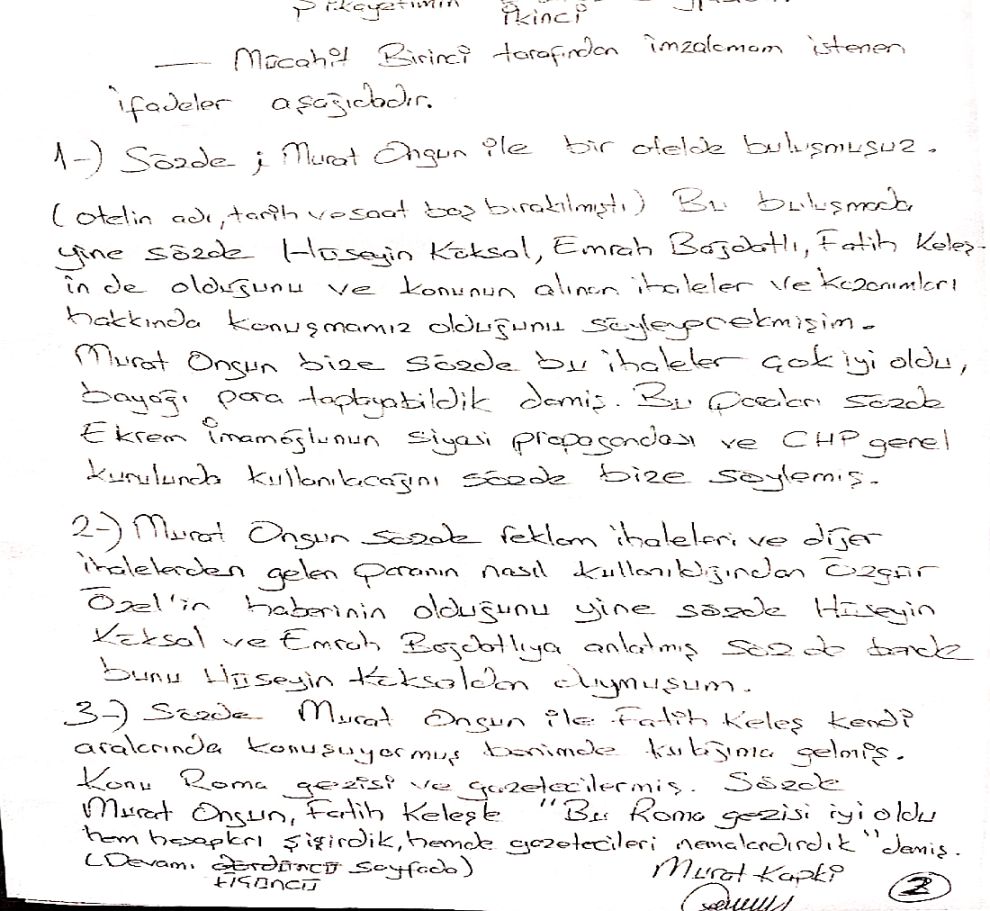 Şikayetimin İkinci
— Mücahit Birinci tarafından imzalamam istenen
ifadeler aşağıdadır.
1-) Sözde ; Murat Ongun ile bir otelde buluşmuşuz.
(otelin adı, tarih ve saat boş bırakılmıştı) Bu buluşmada
yine sözde Hüseyin Köksal, Emrah Bağdatlı, Fatih Keleş-
in de olduğunu ve konunun alınan ihaleler ve kazanımları
hakkında konuşmamız olduğunu söyleyecekmişim.
Murat Ongun bize sözde bu ihaleler çok iyi oldu,
bayağı para toplayabildik demiş. Bu paraları sözde
Ekrem İmamoğlunun siyasi propagandası ve CHP genel
kurulunda kullanılacağını sözde bize söylemiş.
2-) Murat Ongun sözde reklam ihaleleri ve diğer
ihalelerden gelen paranın nasıl kullanıldığından Özgür
Özel'in haberinin olduğunu yine sözde Hüseyin
Köksal ve Emrah Bağdatlıya anlatmış sözde bende
bunu Hüseyin Köksaldan duymuşum.
3-) Sözde Murat Ongun ile Fatih Keleş kendi
aralarında konuşuyormuş benimde kulağıma gelmiş.
Konu Roma gezisi ve gazetecilermiş. Sözde
Murat Ongun, Fatih Keleşe "Bu Roma gezisi iyi oldu
hem hesapları şişirdik, hemde gazetecileri nemalandırdık" demiş.
(Devamı dördüncü sayfada) Murat Kapki
üçüncü
2